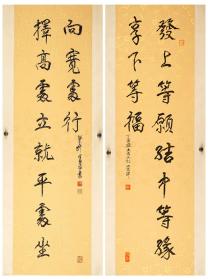 發上等願結中等緣
享下等福
擇高處立就平處坐
向寬處行